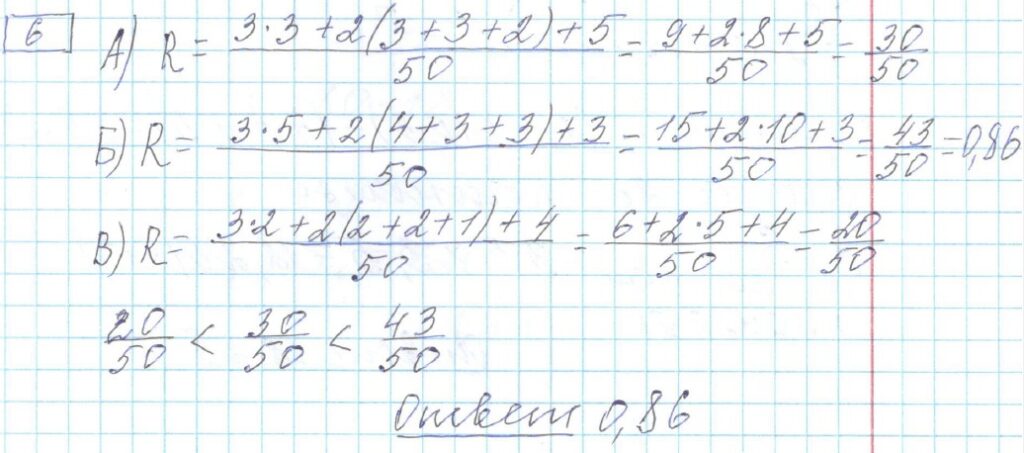 6 А) R = (3·3+2(3+3+2)+5)/50 = (9+2·8+5)/50 = 30/50
Б) R = (3·5+2(4+3+3)+3)/50 = (15+2·10+3)/50 = 43/50 = 0,86
В) R = (3·2+2(2+2+1)+4)/50 = (6+2·5+4)/50 = 20/50
20/50 < 30/50 < 43/50
Ответ 0,86